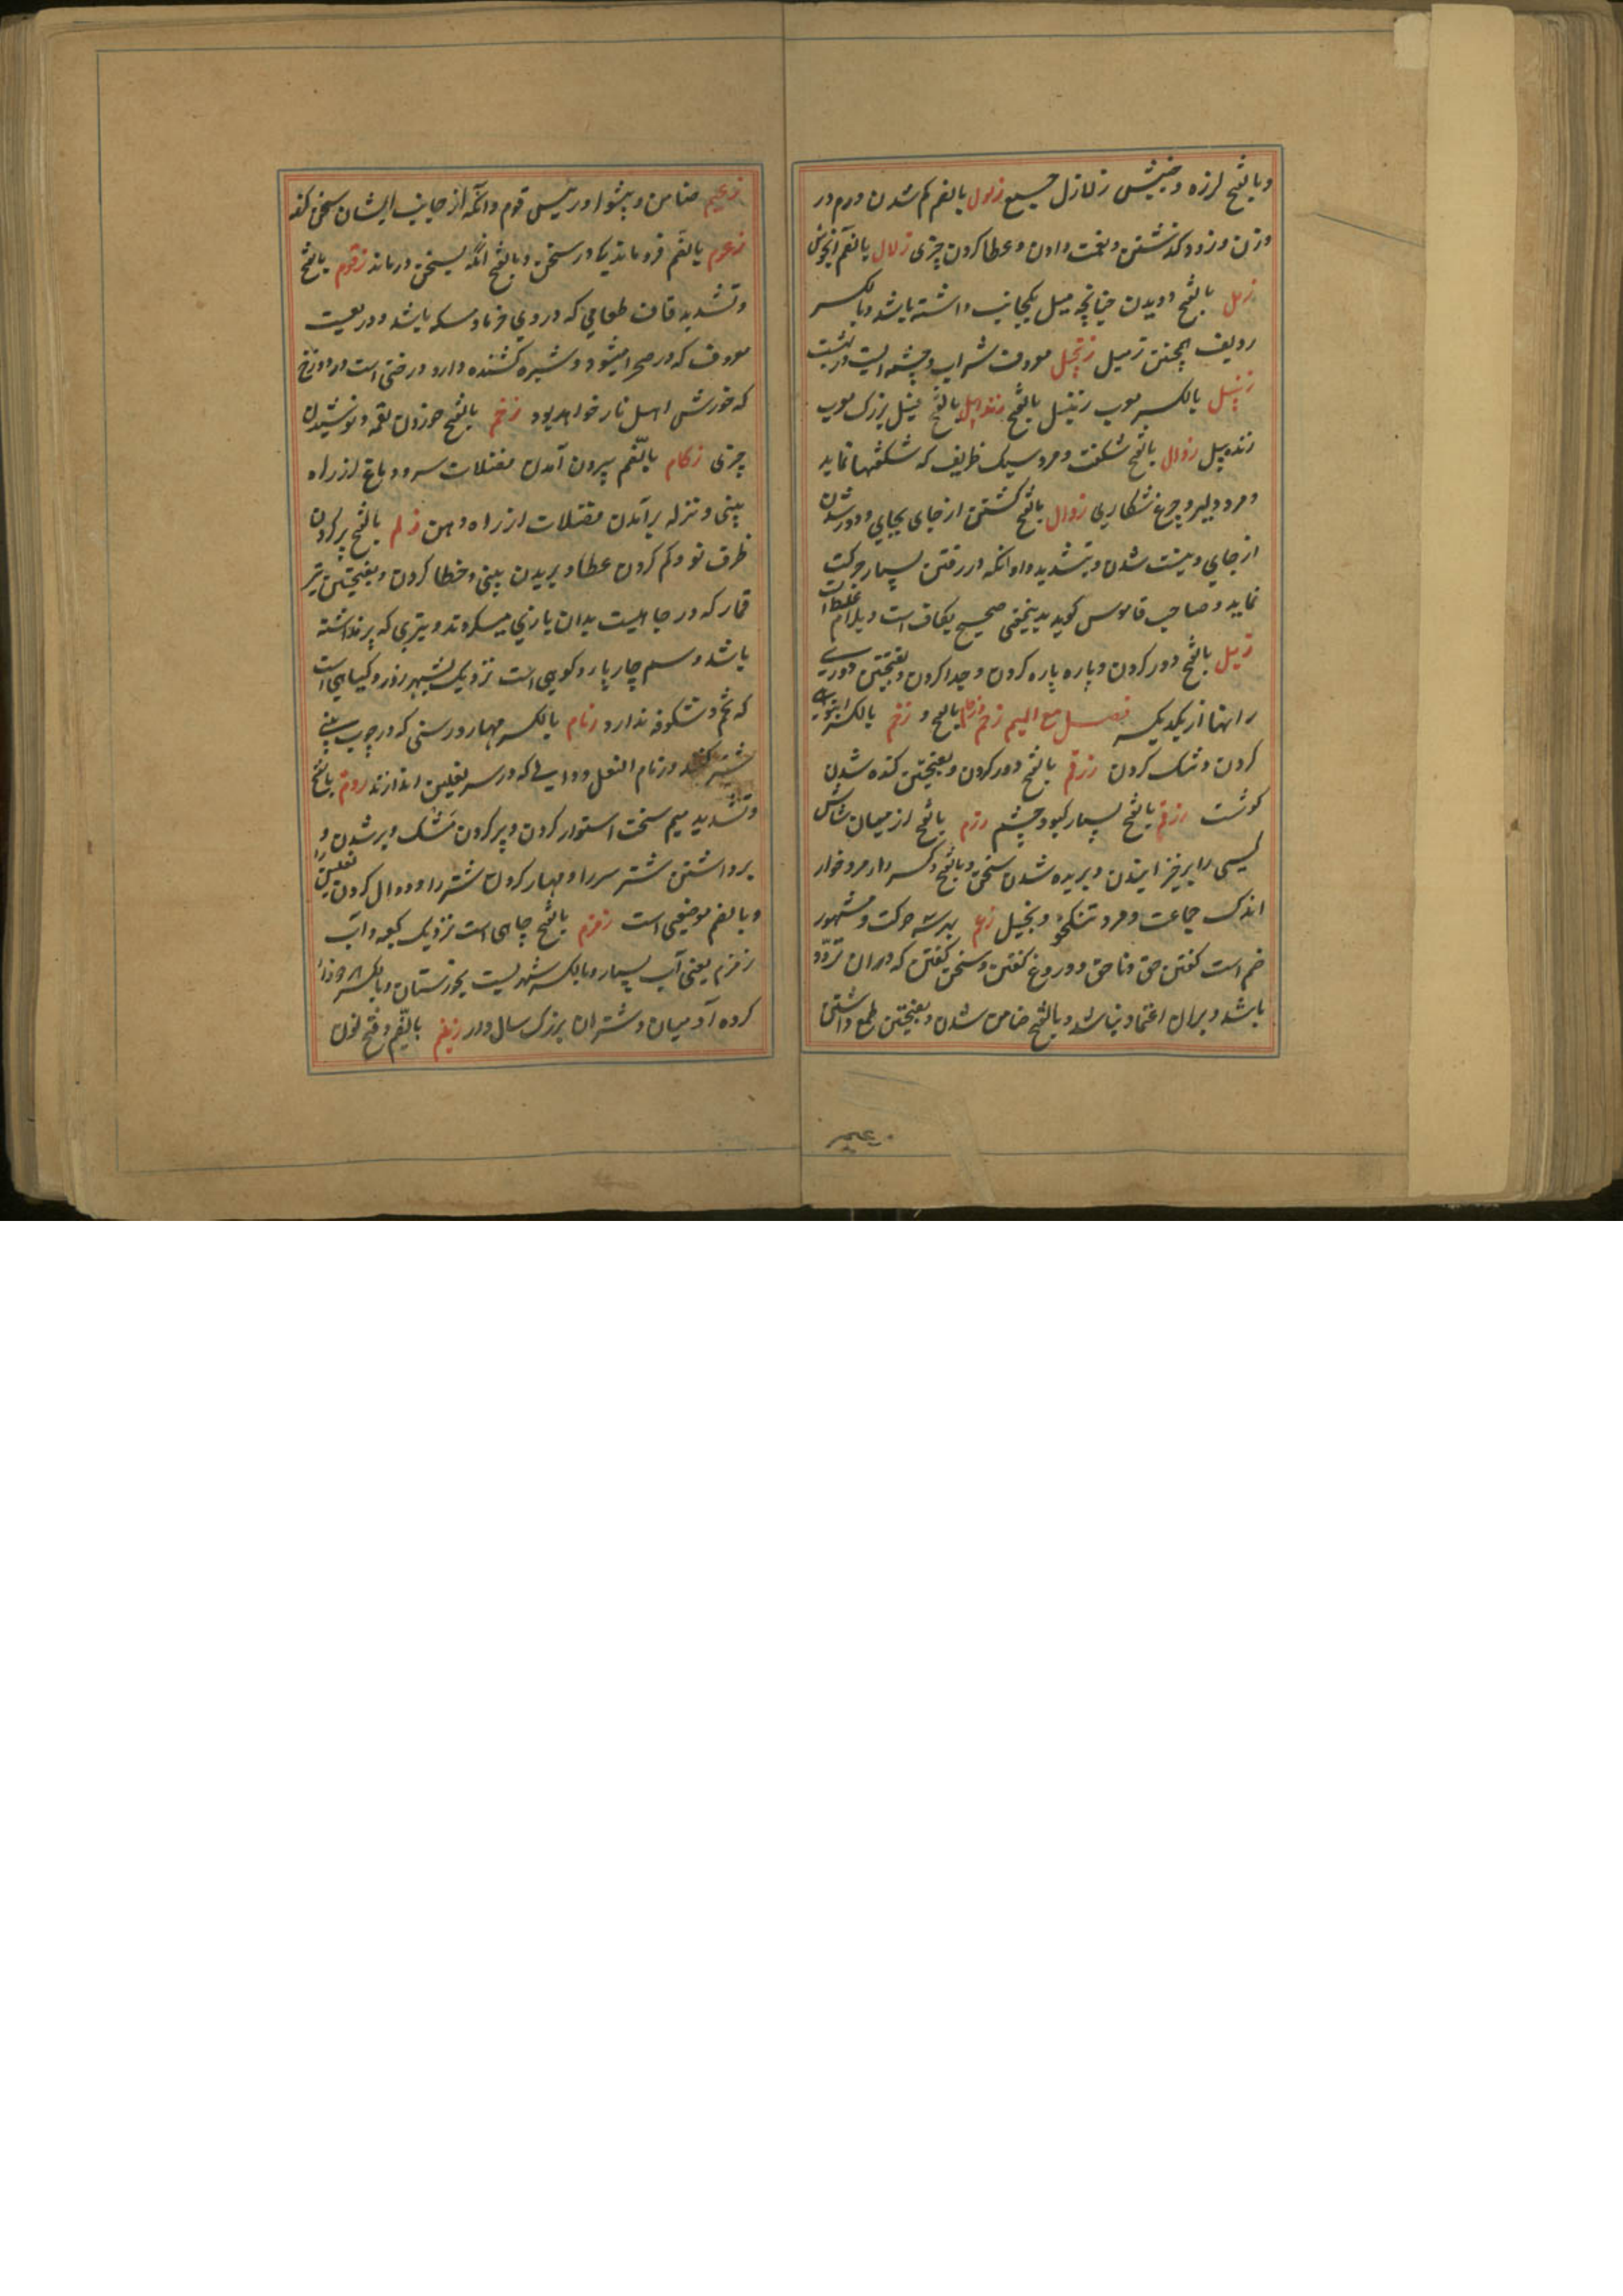 وبالفتح لرزه وجنبش زلازل جمع زلول بالضم کم شدن درم در
وزن وزود کذشتن ونعمت دادن وعطا کردن چیزی زلال بالضم آبخوش
زمل بالفتح دویدن چنانچه میل بیکجانب داشته باشد وبالکسر
ردیف همچنین زمیل زنجبیل معروف شراب وچشمه ایست در بهشت
زنبیل بالکسر معرب زنبیل بالفتح زندبیل بالفتح فیل بزرک معرب
زنده پیل زوال بالفتح شکفت ومرد سبک ظریف که شکفتها نماید
ومرد دلیر وچرغ شکاری زوال بالفتح کشتن از جای بجای ودور شدن
از جای ونیست شدن وبتشدید واو انکه در رفتن بسیار حرکت
نماید وصاحب قاموس کوید بدینمعنی صحیح بکاف است وبلام غلط است
زیل بالفتح دور کردن وپاره پاره کردن وجدا کردن وبفتحتین دوری
رانها از یکدیکر فصل مع المیم زحم زحام بالفتح و زخم بالکسر انبوهی
کردن وتنک کردن زرقم بالفتح دور کردن وبفتحتین کنده شدن
کوشت زرقم بالفتح بسیار کبود چشم زرم بالفتح از میان شاش
کسی را برخیزانیدن وبریده شدن سخن وبالفتح وکسر را مرد خوار
اندک جماعت ومرد تنکخو وبخیل زعم بهر سه حرکت ومشهور
ضم است کفتن حق وناحق ودروغ کفتن وسخن کفتن که در ان تردد
باشد وبران اعتماد نباشد وبالفتح ضامن شدن وبفتحتین طمع داشتن
زعیم
زعیم ضامن وپیشوا ورئیس قوم وانکه از جانب ایشان سخن کند
زعوم بالضم فرو ماندیکا در سخن وبالفتح انکه بسخن درماند زقوم بالفتح
وتشدید قاف طعامی که در وی خرما ومسکه باشد ودرختیست
معروف که در صحرا میشود وشیره کشنده دارد ودرختی است در دوزخ
که خورش اهل نار خواهد بود زقم بالفتح خوردن لقمه ونوشیدن
چیزی زکام بالضم بیرون آمدن فضلات سر ودماغ از راه
بینی ونزله برآمدن فضلات از راه دهن زلم بالفتح پر کردن
ظرف نو وکم کردن عطا وبریدن بینی وخطا کردن وبفتحتین تیر
قمار که در جاهلیت بدان بازی میکردند وتیری که پر نداشته
باشد وسم چارپا وکوهی است نزدیک بشهر زور وکیاهی است
که تخم وشکوفه ندارد زمام بالکسر مهار ورسنی که در چوب بینی
شتر کنند وزمام النعل دوالی که در سر نعلین اندازند زم بالفتح
وتشدید میم سخت استوار کردن وپر کردن مشک وپر شدن و
برداشتن شتر سر را ومهار کردن شتر را ودوال کردن نعلین را
وبالضم موضعی است زمزم بالفتح چاهی است نزدیک کعبه وآب
زمزم یعنی آب بسیار وبالکسر شهریست بخوزستان وبالکسر
کرده آدمیان وشتران بزرک سال ودر زنیم بالضم وفتح نون